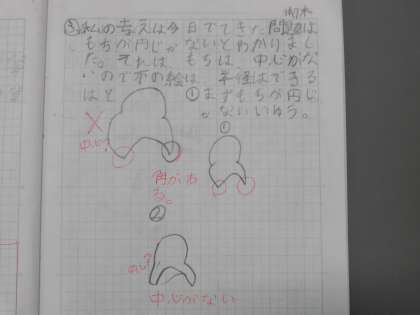 ③ぼくの考えは今日でてきた問題は
もちが円じゃないとわかりまし
た。それは、もちは、中心がな
いので下の絵は、半径はできる
けど
①まずもちが円じ
ゃないいゆう。
①
中心?
角がある。
②
中心?
中心がない